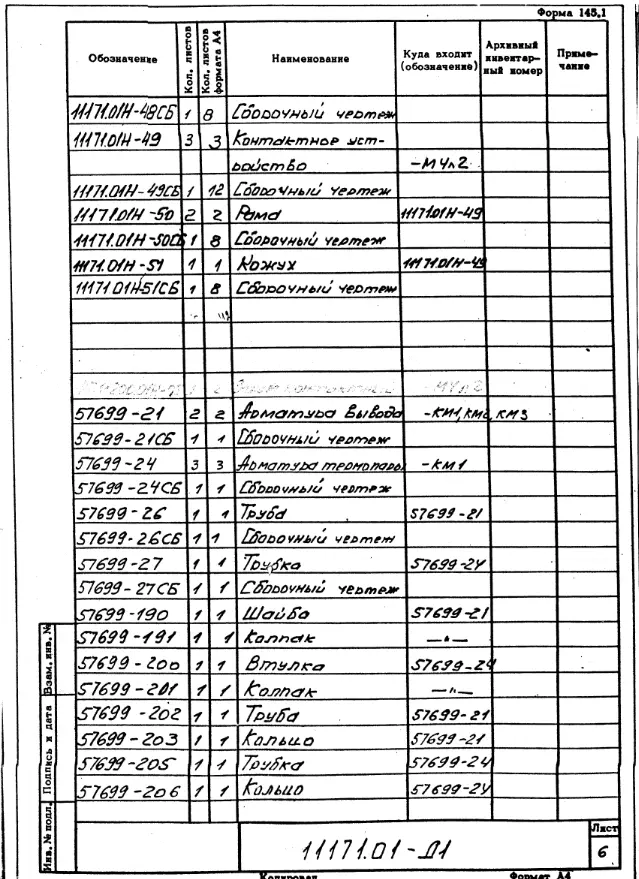 Форма 145.1
Обозначение Кол. листов Кол. листов формата А4 Наименование Куда входит (обозначение) Архивный инвентар-ный номер Приме-чание
11171.01Н-48СБ 1 8 Сборочный чертеж
11171.01Н-49 3 3 Контактное уст-
ройство -МЧЛ2
11171.01Н-49СБ 1 12 Сборочный чертеж
11171.01Н-50 2 2 Рама 11171.01Н-49
11171.01Н-50СБ 1 8 Сборочный чертеж
11171.01Н-51 1 1 Кожух 11171.01Н-49
11171.01Н51СБ 1 8 Сборочный чертеж
57699-21 2 2 Арматура вывода -КМ1, КМ2, КМ3
57699-21СБ 1 1 Сборочный чертеж
57699-24 3 3 Арматура термопары -КМ1
57699-24СБ 1 1 Сборочный чертеж
57699-26 1 1 Труба 57699-21
57699-26СБ 1 1 Сборочный чертеж
57699-27 1 1 Трубка 57699-24
57699-27СБ 1 1 Сборочный чертеж
57699-190 1 1 Шайба 57699-21
57699-191 1 1 Колпак —"—
57699-200 1 1 Втулка 57699-24
57699-201 1 1 Колпак —"—
57699-202 1 1 Труба 57699-21
57699-203 1 1 Кольцо 57699-21
57699-205 1 1 Трубка 57699-24
57699-206 1 1 Кольцо 57699-24
Взам. инв. №
Подпись и дата
Инв. № подл.
11171.01-Д1
Лист
6
Копировал Формат А4